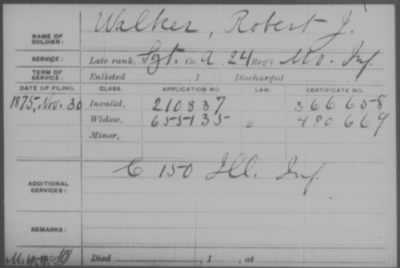 NAME OF SOLDIER: Walker, Robert J.
SERVICE: Late rank, Sgt. Co. A, 24 Reg't Mo. Inf.
TERM OF SERVICE: Enlisted , 1 Discharged
DATE OF FILING. CLASS. APPLICATION NO. LAW. CERTIFICATE NO.
1875, Nov. 30 Invalid, 210837 366658
Widow, 655135 480669
Minor,
ADDITIONAL SERVICES: C 150 Ill. Inf
REMARKS:
Died , 1 , at